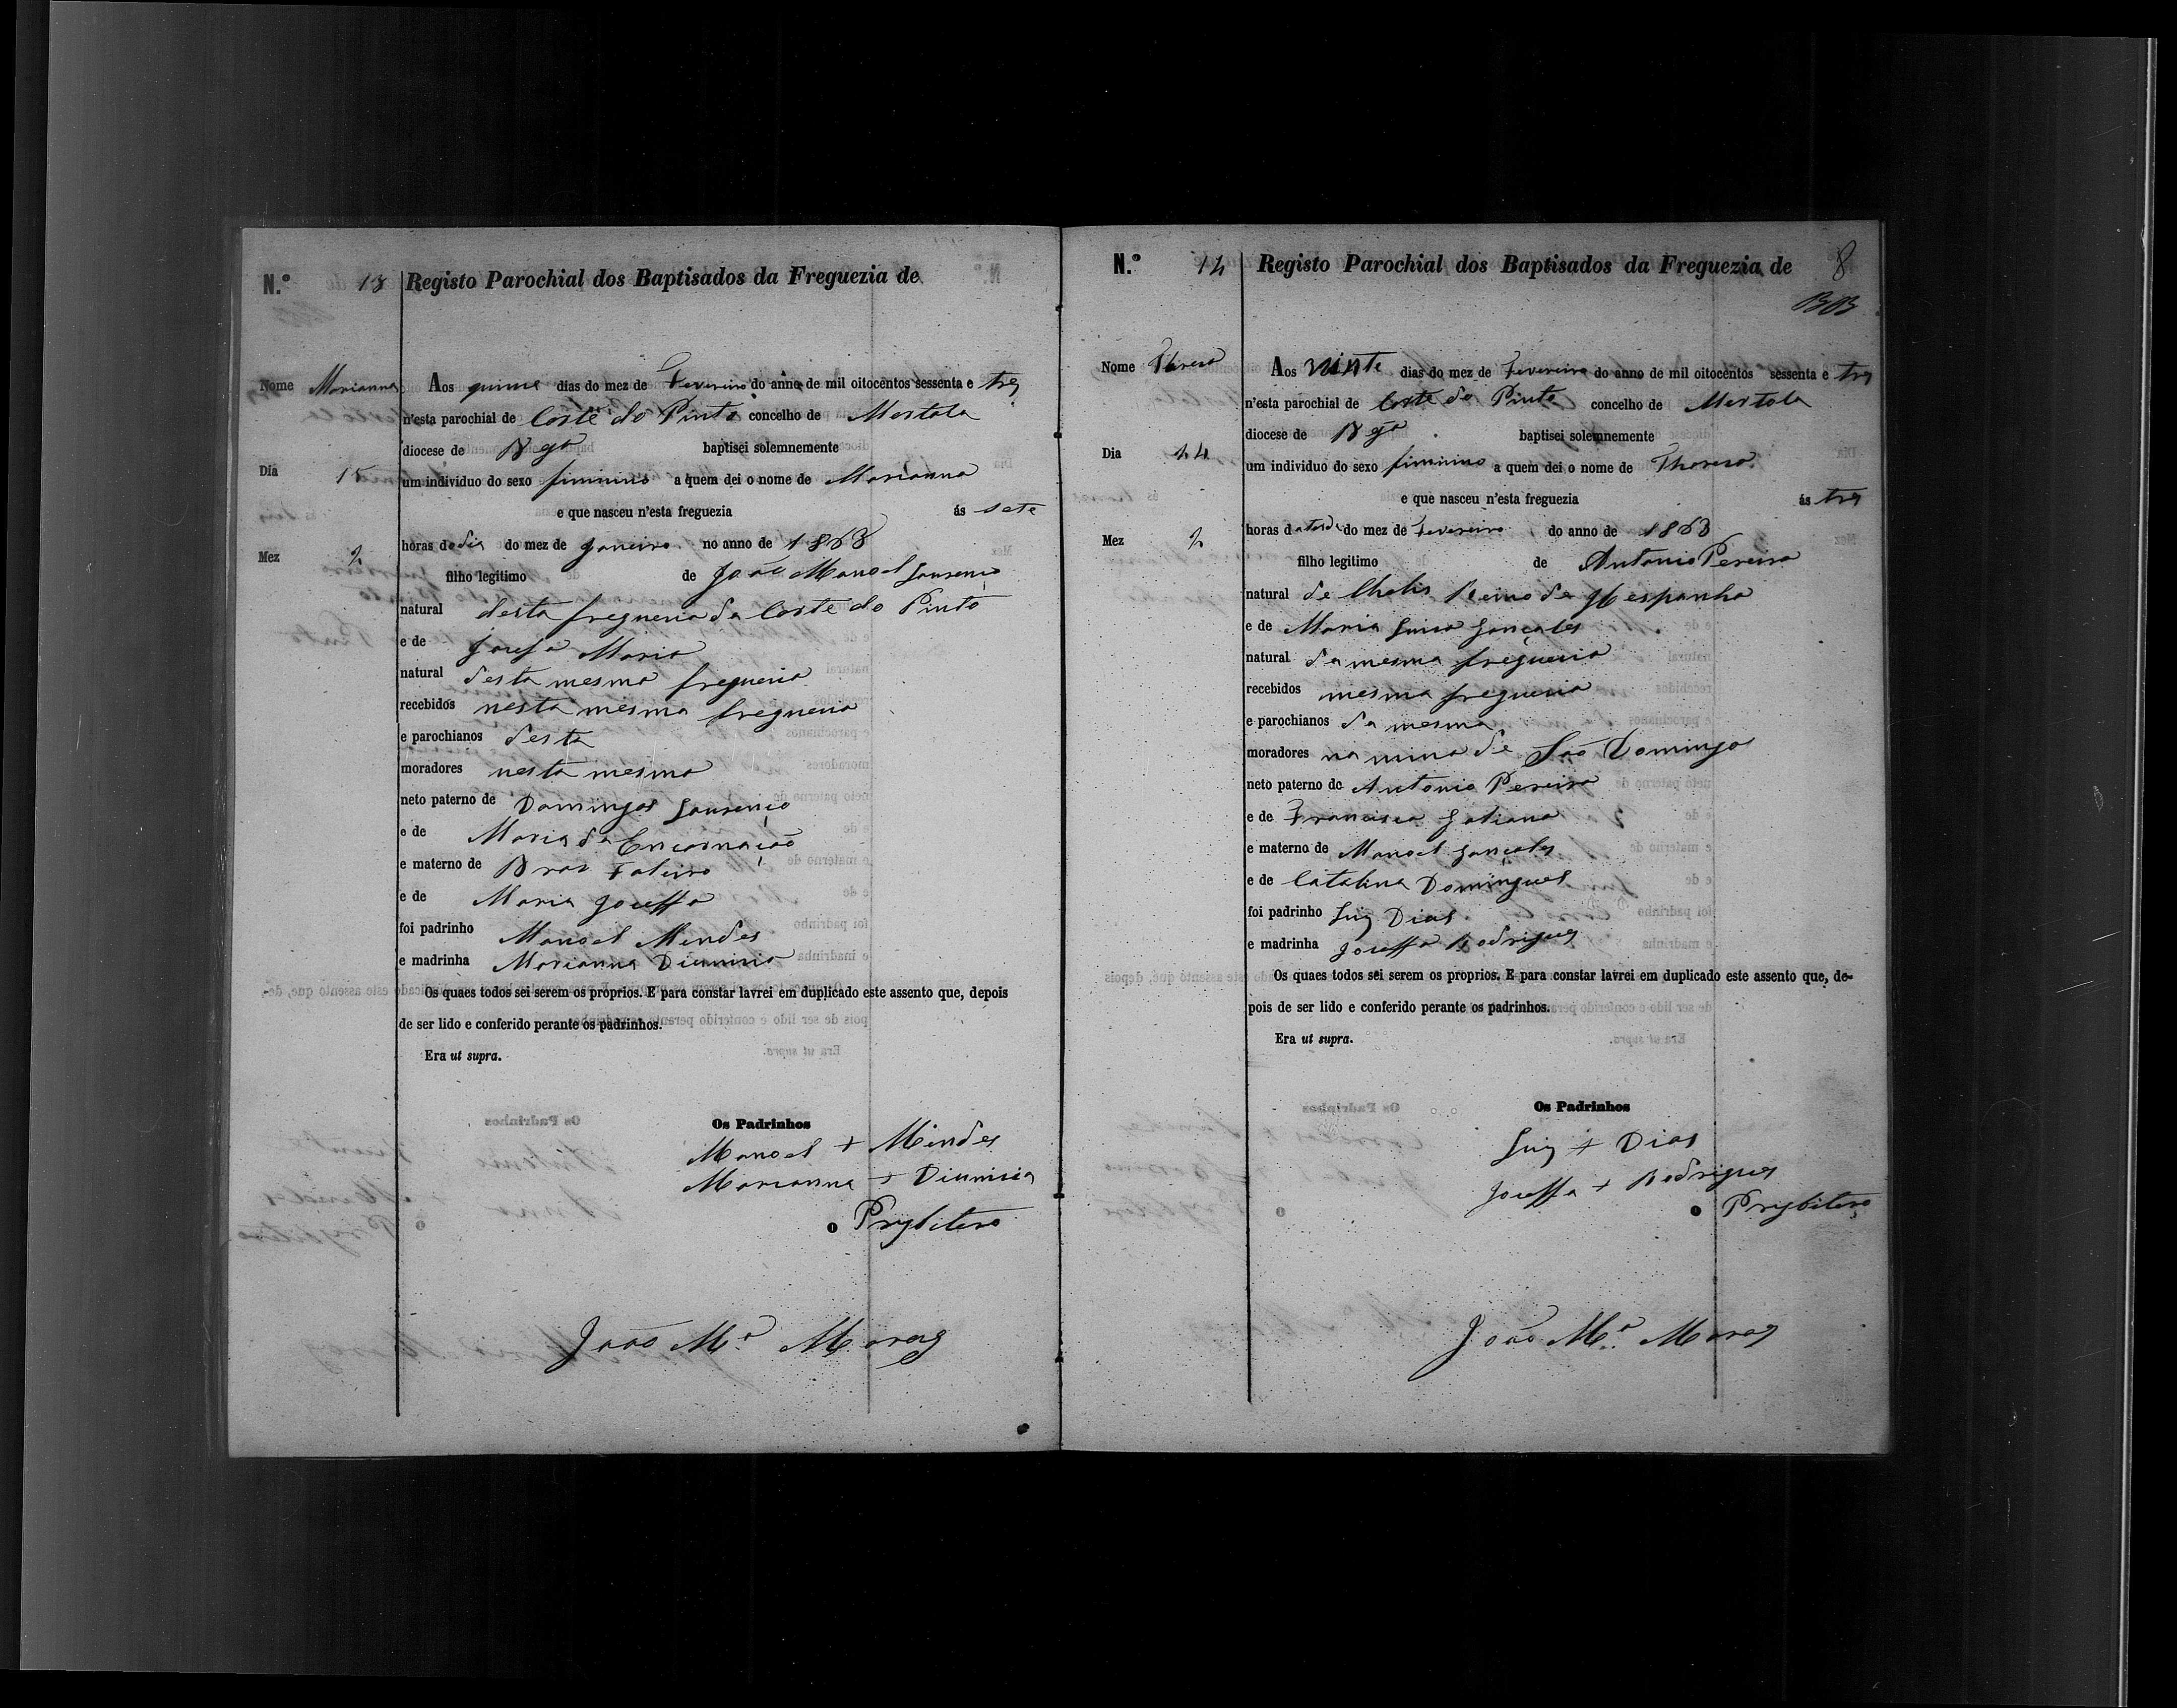 N.º 13 Registo Parochial dos Baptisados da Freguezia de
Nome Marianna Aos quinze dias do mez de Fevereiro do anno de mil oitocentos sessenta e tres
n'esta parochial de Corte do Pinto concelho de Mertola
diocese de baptisei solemnemente
Dia 15 um individuo do sexo feminino a quem dei o nome de Marianna
e que nasceu n'esta freguezia ás sete
Mez 2 horas do dia do mez de Janeiro no anno de 1863
filho legitimo de João Manoel Lourenço
natural desta freguezia da Corte do Pinto
e de Josefa Maria
natural desta mesma freguezia
recebidos nesta mesma freguezia
e parochianos desta
moradores nesta mesma
neto paterno de Domingos Lourenço
e de Maria da Encarnação
e materno de Braz Faleiro
e de Maria Joseffa
foi padrinho Manoel Mendes
e madrinha Marianna
Os quaes todos sei serem os proprios. E para constar lavrei em duplicado este assento que, depois
de ser lido e conferido perante os padrinhos.
Era ut supra.
Os Padrinhos
Manoel + Mendes
Marianna +
o Prybitero
João M.ª Moraz
N.º 14 Registo Parochial dos Baptisados da Freguezia de 8
Nome Thereza Aos vinte dias do mez de Fevereiro do anno de mil oitocentos sessenta e tres
n'esta parochial de Corte do Pinto concelho de Mertola
diocese de baptisei solemnemente
Dia um individuo do sexo feminino a quem dei o nome de Thereza
e que nasceu n'esta freguezia ás tres
Mez 2 horas da tarde do mez de Fevereiro do anno de 1863
filho legitimo de Antonio Pereira
natural de Reino da Hespanha
e de Maria Luiza Gonçales
natural da mesma freguezia
recebidos mesma freguezia
e parochianos da mesma
moradores na mina de São Domingos
neto paterno de Antonio Pereira
e de Francisca
e materno de Manoel Gonçales
e de Catalina Domingues
foi padrinho Luiz Dias
e madrinha Joseffa Rodrigues
Os quaes todos sei serem os proprios. E para constar lavrei em duplicado este assento que, de-
pois de ser lido e conferido perante os padrinhos.
Era ut supra.
Os Padrinhos
Luiz + Dias
Joseffa + Rodrigues
o Prybitero
João M.ª Moraz